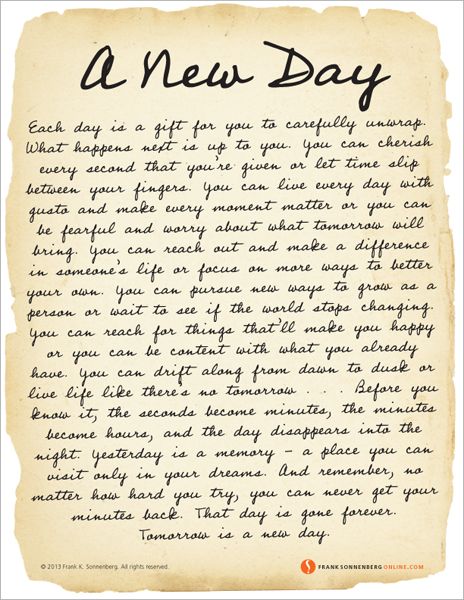 A New Day
Each day is a gift for you to carefully unwrap.
What happens next is up to you. You can cherish
every second that you're given or let time slip
between your fingers. You can live every day with
gusto and make every moment matter or you can
be fearful and worry about what tomorrow will
bring. You can reach out and make a difference
in someone's life or focus on more ways to better
your own. You can pursue new ways to grow as a
person or wait to see if the world stops changing.
You can reach for things that'll make you happy
or you can be content with what you already
have. You can drift along from dawn to dusk or
live life like there's no tomorrow . . . . Before you
know it, the seconds become minutes, the minutes
become hours, and the day disappears into the
night. Yesterday is a memory – a place you can
visit only in your dreams. And remember, no
matter how hard you try, you can never get your
minutes back. That day is gone forever.
Tomorrow is a new day.
© 2013 Frank K. Sonnenberg. All rights reserved.
FRANKSONNENBERGONLINE.COM